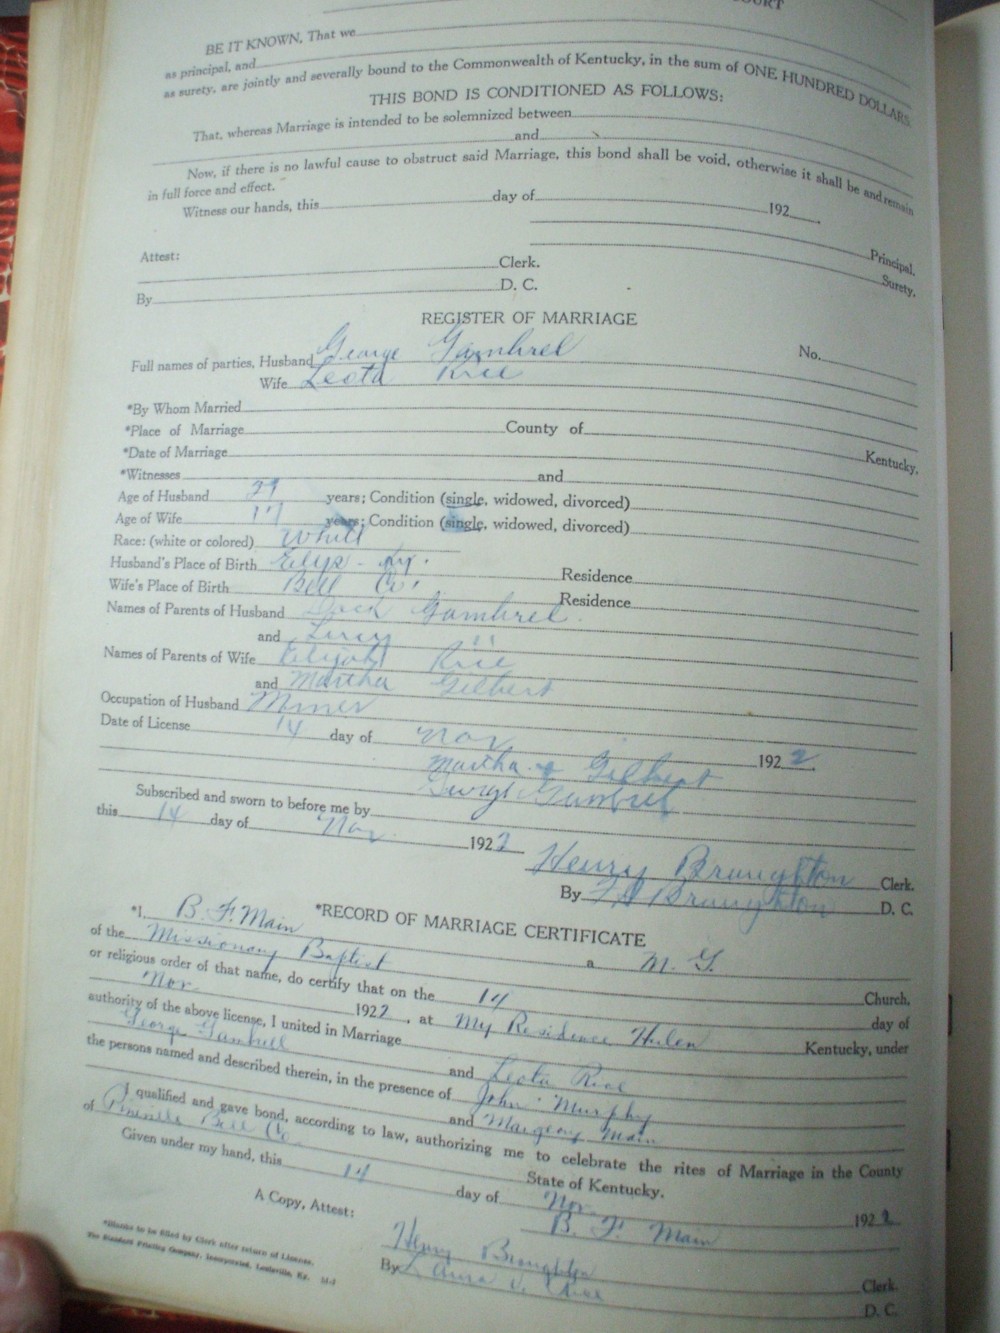 COURT
BE IT KNOWN, That we
as principal, and
as surety, are jointly and severally bound to the Commonwealth of Kentucky, in the sum of ONE HUNDRED DOLLARS.
THIS BOND IS CONDITIONED AS FOLLOWS:
That, whereas Marriage is intended to be solemnized between
and
Now, if there is no lawful cause to obstruct said Marriage, this bond shall be void, otherwise it shall be and remain
in full force and effect.
Witness our hands, this day of 192 .
Principal.
Attest: Clerk. Surety.
By D. C.
REGISTER OF MARRIAGE
Full names of parties, Husband George Gambrel No.
Wife Leota Rice
*By Whom Married
*Place of Marriage County of Kentucky.
*Date of Marriage
*Witnesses and
Age of Husband 29 years; Condition (single, widowed, divorced)
Age of Wife 17 years; Condition (single, widowed, divorced)
Race: (white or colored) White
Husband's Place of Birth Elys - Ky. Residence
Wife's Place of Birth Bell Co. Residence
Names of Parents of Husband Gambrel
and Lucy "
Names of Parents of Wife Elijah Rice
and Martha Gilbert
Occupation of Husband Miner
Date of License 14 day of Nov 1922.
Martha Gilbert
George Gambrel
Subscribed and sworn to before me by
this 14 day of Nov. 1922
Henry Broughton Clerk.
By Broughton D. C.
*RECORD OF MARRIAGE CERTIFICATE
*I, B. F. Main a M. G.
of the Missionary Baptist Church,
or religious order of that name, do certify that on the 14 day of
Nov. 1922, at My Residence Hulen Kentucky, under
authority of the above license, I united in Marriage
George Gambrell and Leota Rice
the persons named and described therein, in the presence of John Murphy
and Main
I qualified and gave bond, according to law, authorizing me to celebrate the rites of Marriage in the County
of Pineville Bell Co. State of Kentucky.
Given under my hand, this 14 day of Nov. 1922
B. F. Main
A Copy, Attest:
Henry Broughton Clerk.
By D. C.
*Blanks to be filled by Clerk after return of License.
The Standard Printing Company, Incorporated, Louisville, Ky.